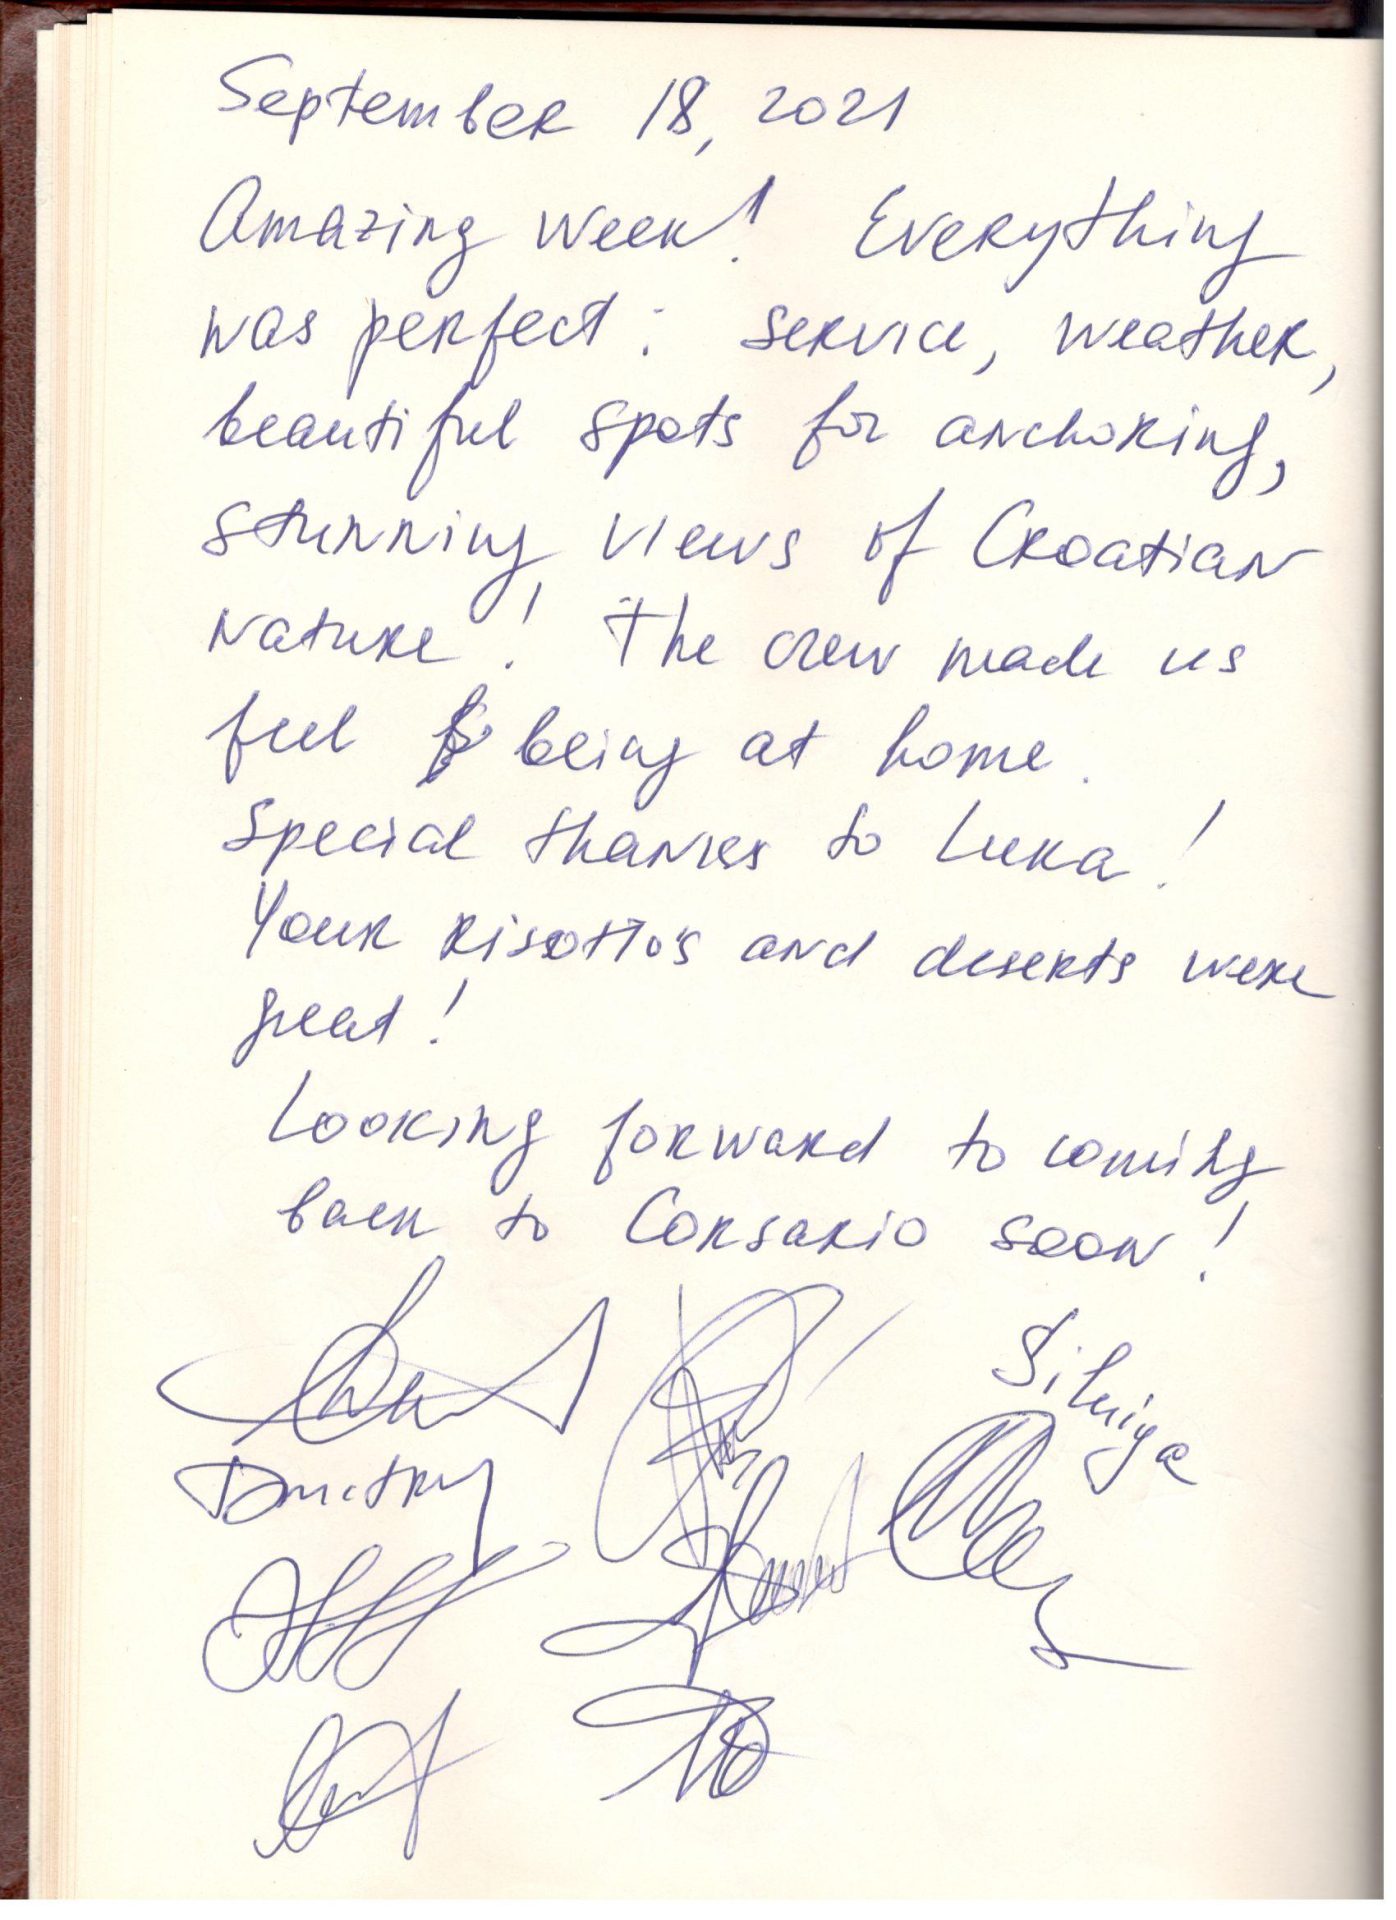 September 18, 2021
Amazing week! Everything
was perfect: service, weather,
beautiful spots for anchoring,
stunning views of Croatian
nature! The crew made us
feel being at home.
Special thanks to Luka!
Your risotto's and deserts were
great!
Looking forward to coming
back to Corsario soon!
Dmitry